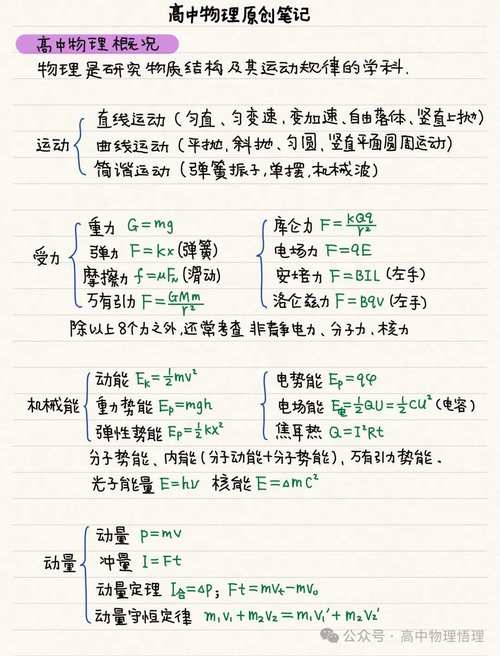 高中物理原创笔记
高中物理概况
物理是研究物质结构及其运动规律的学科.
运动
直线运动(匀直、匀变速,变加速、自由落体、竖直上抛)
曲线运动(平抛,斜抛、匀圆,竖直平面圆周运动)
简谐运动(弹簧振子,单摆,机械波)
受力
重力 G=mg
弹力 F=kx(弹簧)
摩擦力 f=μFₙ(滑动)
万有引力 F=GMm/r²
库仑力 F=kQq/r²
电场力 F=qE
安培力 F=BIL(左手)
洛仑兹力 F=Bqv(左手)
除以上8个力之外,还常考查 非静电力、分子力、核力
机械能
动能 Eₖ=½mv²
重力势能 Eₚ=mgh
弹性势能 Eₚ=½kx²
电势能 Eₚ=qφ
电场能 E电=½QU=½CU²(电容)
焦耳热 Q=I²Rt
分子势能、内能(分子动能+分子势能),万有引力势能.
光子能量 E=hν 核能 E=△mC²
动量
动量 p=mv
冲量 I=Ft
动量定理 I合=△P; Ft=mvₜ-mv₀
动量守恒定律 m₁v₁+m₂v₂=m₁v₁'+m₂v₂'
公众号·高中物理悟理